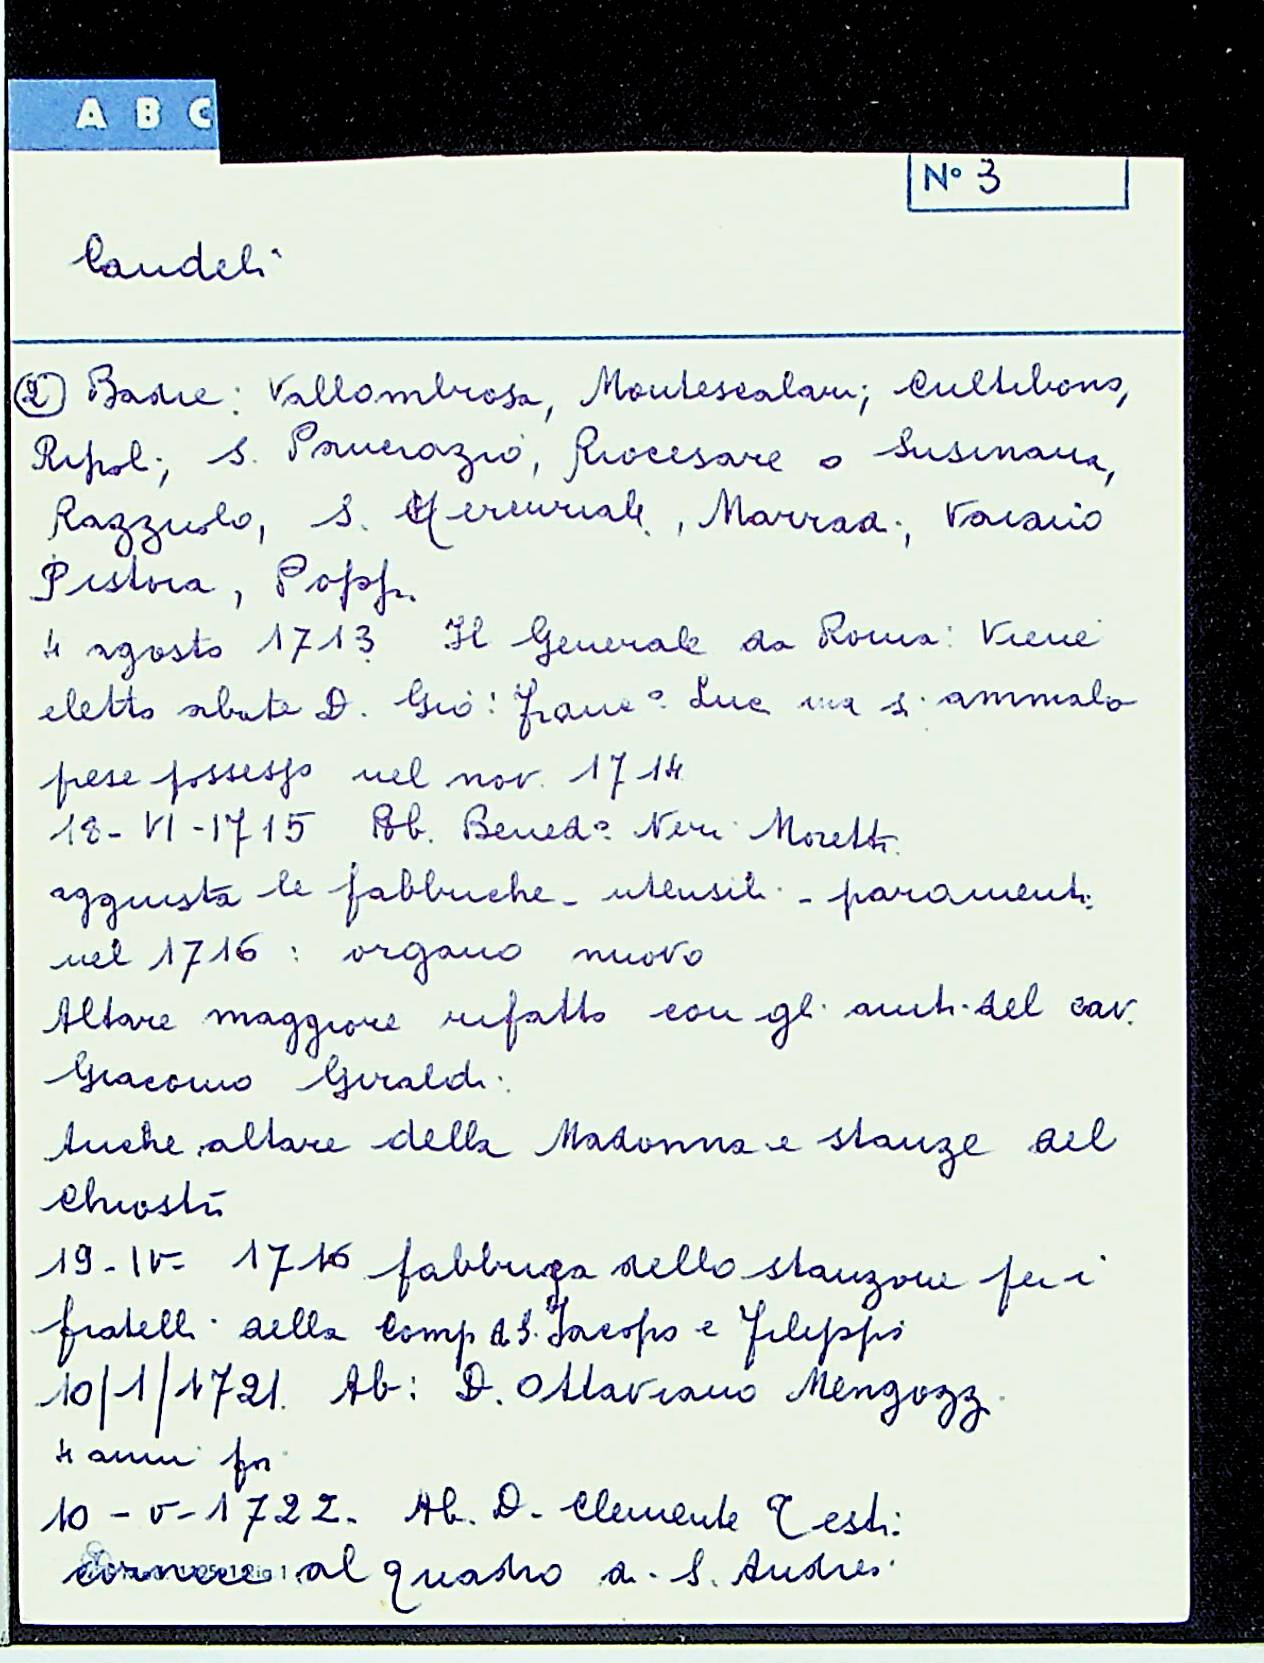 A B C
N° 3
Candeli
② Badie: Vallombrosa, Montescalari; Coltibono,
Ripoli; S. Pancrazio, Riocesare o Susinana,
Razzuolo, S. Mercuriale, Marradi, Vaiano
Pistoia, Poppi
4 agosto 1713 Il Generale da Roma: Viene
eletto abate D. Gio: Franc° Luc ma si ammalò
prese possesso nel nov. 1714
18-VI-1715 Ab. Bened° Neri Moretti
aggiusta le fabbriche - utensili - paramenti
nel 1716: organo nuovo
Altare maggiore rifatto con gli aiuti del cav.
Giacomo Giraldi.
Anche altare della Madonna e stanze del
Chiostro
19-IV- 1716 fabbrica dello stanzone per i
fratelli della Comp di S. Jacopo e Filippo
10/1/1721. Ab: D. Ottaviano Mengozzi
4 anni fa
10-V-1722. Ab. D. Clemente Testi:
cornice al quadro di S. Andrea